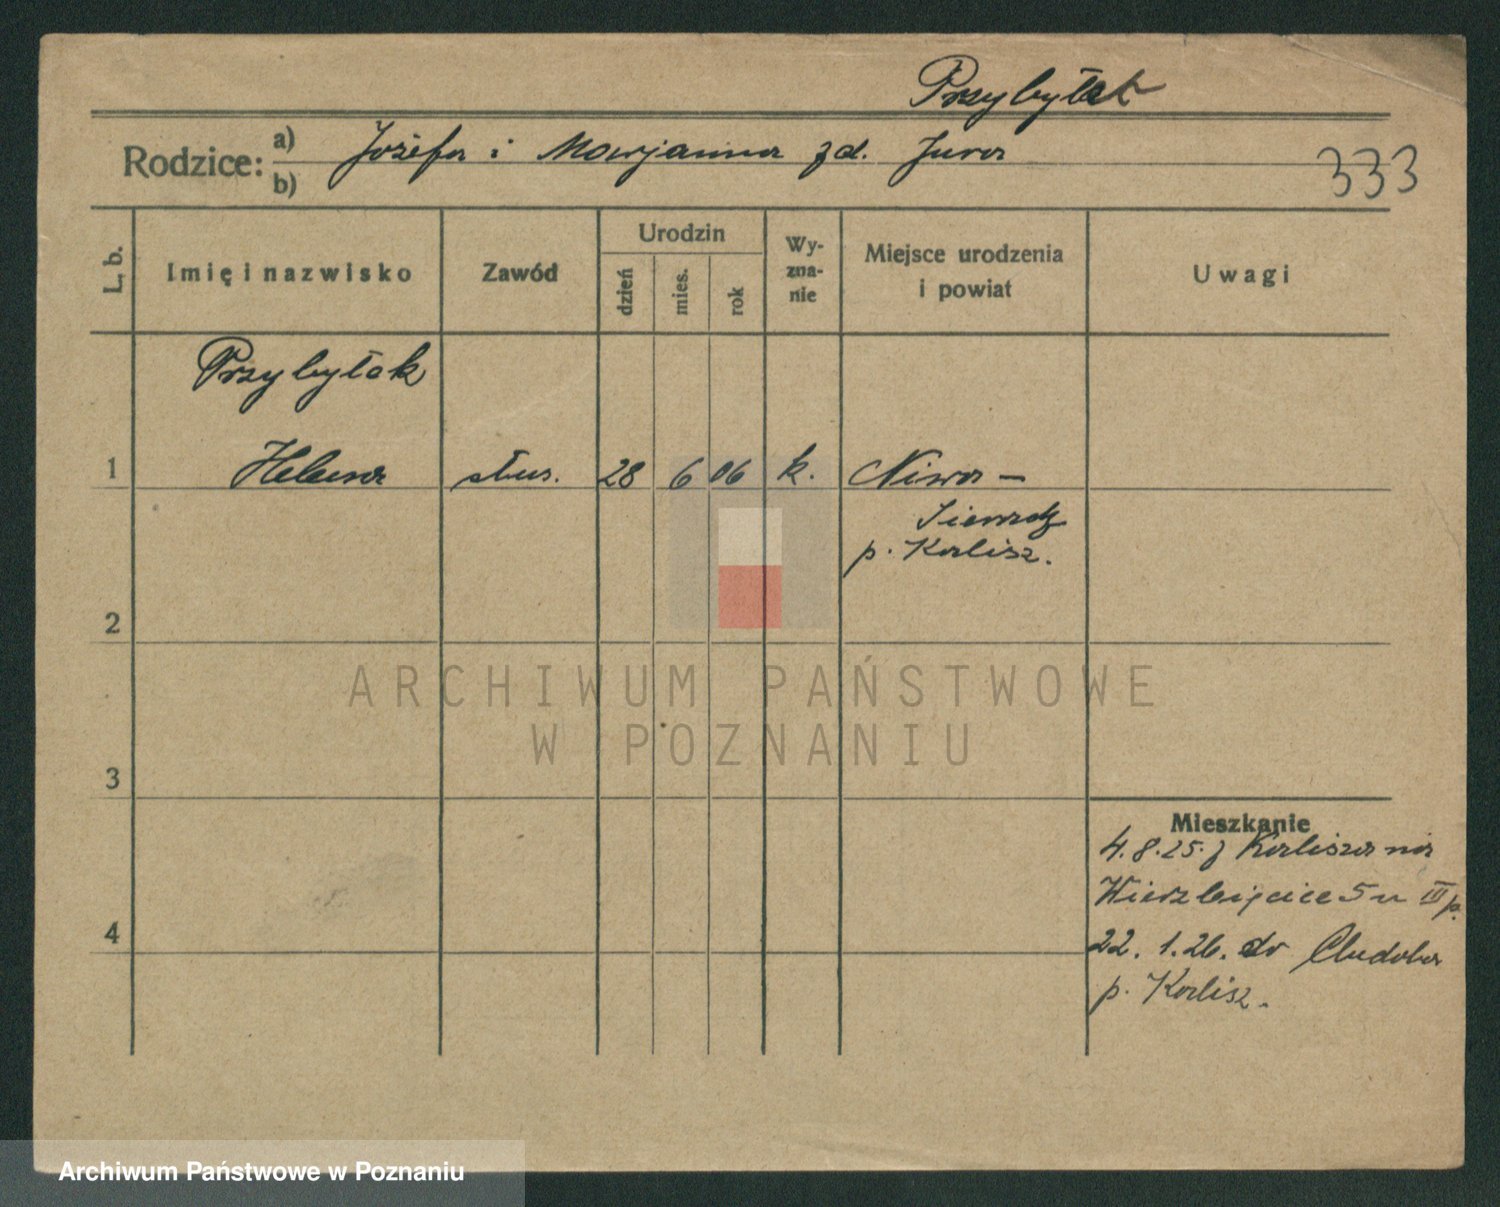 Przybyłek
Rodzice: a) Józefa i Marjanna zd. Jura
b)
333
L. b. Imię i nazwisko Zawód Urodzin dzień mies. rok Wy-zna-nie Miejsce urodzenia i powiat Uwagi
Przybyłak
1 Helena słus. 28 6 06 k. Niwa –
p. Kalisz.
2
ARCHIWUM PAŃSTWOWE
W POZNANIU
3
Mieszkanie
4.8.25. z Kalisza na
Wierzbięcice 5 u III p.
4
22. 1.26. do Chudoba
p. Kalisz.
Archiwum Państwowe w Poznaniu